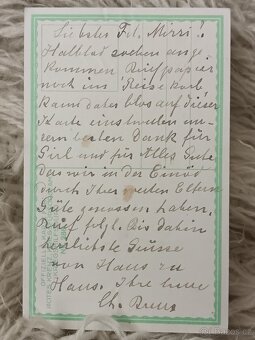 Liebstes Frl. Mizzi!
Halbtod soeben ange
kommen Briefpapier
noch im Reisekorb
kann daher blos auf dieser
Karte einstweilen un-
sern besten Dank für
und für Alles Gute
das wir in der Einöd
durch Ihrer werten Eltern
Güte genossen haben,
Brief folgt. Bis dahin
herzlichste Grüsse
von Haus zu
Haus. Ihre
OFFIZIELLE
ROTEN KREUZ